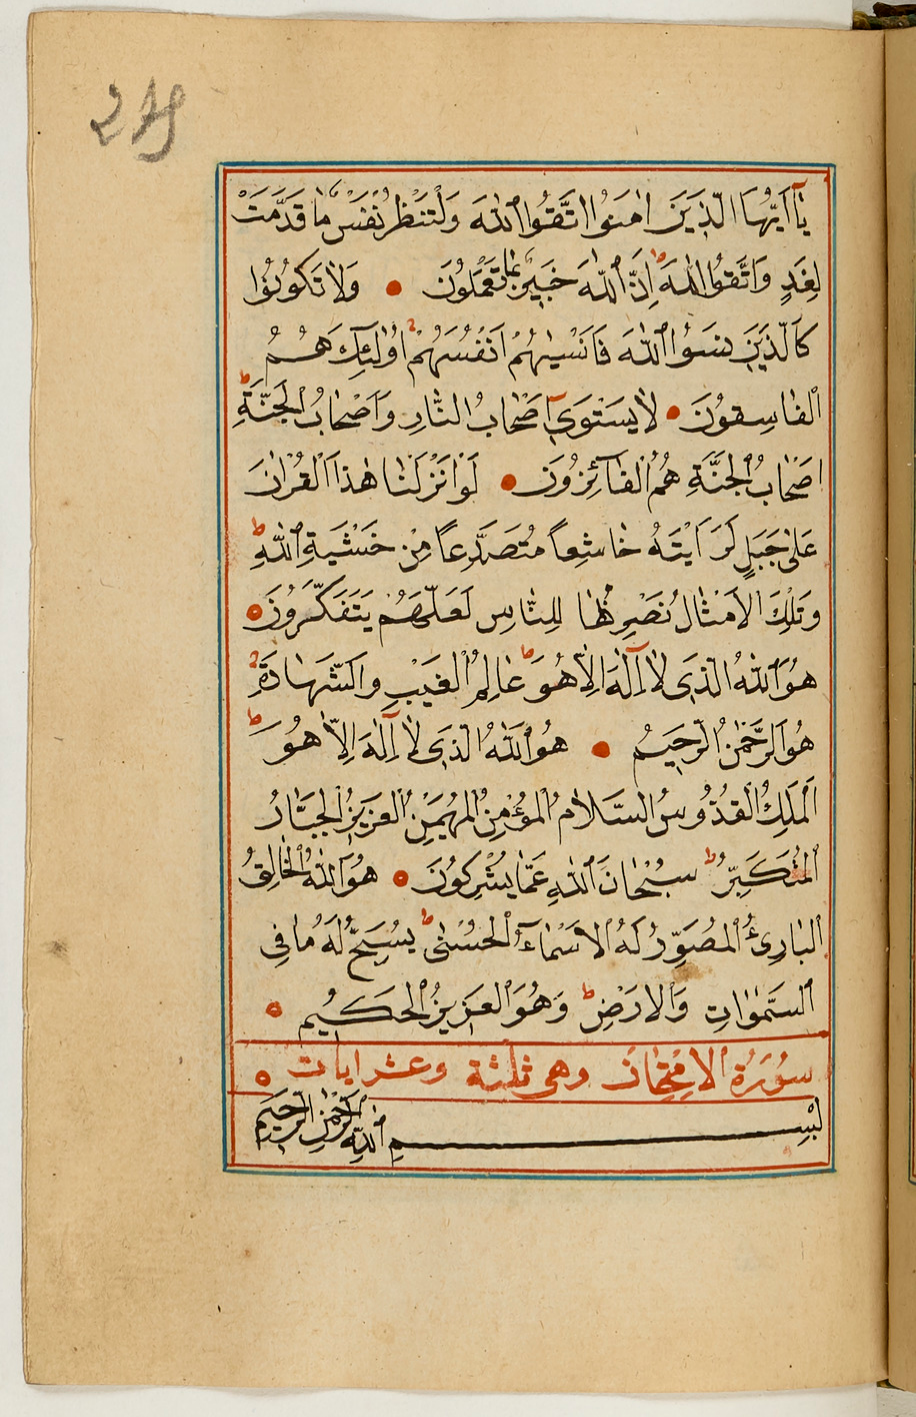 219
يَٓا اَيُّهَا الَّذِينَ اٰمَنُوا اتَّقُوا اللّٰهَ وَلْتَنْظُرْ نَفْسٌ مَا قَدَّمَتْ
لِغَدٍ وَاتَّقُوا اللّٰهَ ط اِنَّ اللّٰهَ خَبِيرٌ بِمَا تَعْمَلُونَ وَلَا تَكُونُوا
كَالَّذِينَ نَسُوا اللّٰهَ فَاَنْسٰيهُمْ اَنْفُسَهُمْ اُولٰئِكَ هُمُ
الْفَاسِقُونَ لَا يَسْتَوِىٓ اَصْحَابُ النَّارِ وَاَصْحَابُ الْجَنَّةِ ط
اَصْحَابُ الْجَنَّةِ هُمُ الْفَآئِزُونَ لَوْ اَنْزَلْنَا هٰذَا الْقُرْاٰنَ
عَلٰى جَبَلٍ لَرَاَيْتَهُ خَاشِعاً مُتَصَدِّعاً مِنْ خَشْيَةِ اللّٰهِ ط
وَتِلْكَ الْاَمْثَالُ نَضْرِبُهَا لِلنَّاسِ لَعَلَّهُمْ يَتَفَكَّرُونَ
هُوَ اللّٰهُ الَّذِى لَٓا اِلٰهَ اِلَّا هُوَ ط عَالِمُ الْغَيْبِ وَالشَّهَادَةِ
هُوَ الرَّحْمٰنُ الرَّحِيمُ هُوَ اللّٰهُ الَّذِى لَٓا اِلٰهَ اِلَّا هُوَ ط
اَلْمَلِكُ الْقُدُّوسُ السَّلَامُ الْمُؤْمِنُ الْمُهَيْمِنُ الْعَزِيزُ الْجَبَّارُ
الْمُتَكَبِّرُ ط سُبْحَانَ اللّٰهِ عَمَّا يُشْرِكُونَ هُوَ اللّٰهُ الْخَالِقُ
الْبَارِئُ الْمُصَوِّرُ لَهُ الْاَسْمَآءُ الْحُسْنٰى ط يُسَبِّحُ لَهُ مَا فِى
السَّمٰوَاتِ وَالْاَرْضِ ط وَهُوَ الْعَزِيزُ الْحَكِيمُ
سُورَةُ الْاِمْتِحَانْ وهى ثلثة وعشر ايات
بِسْمِ اللّٰهِ الرَّحْمٰنِ الرَّحِيمِ